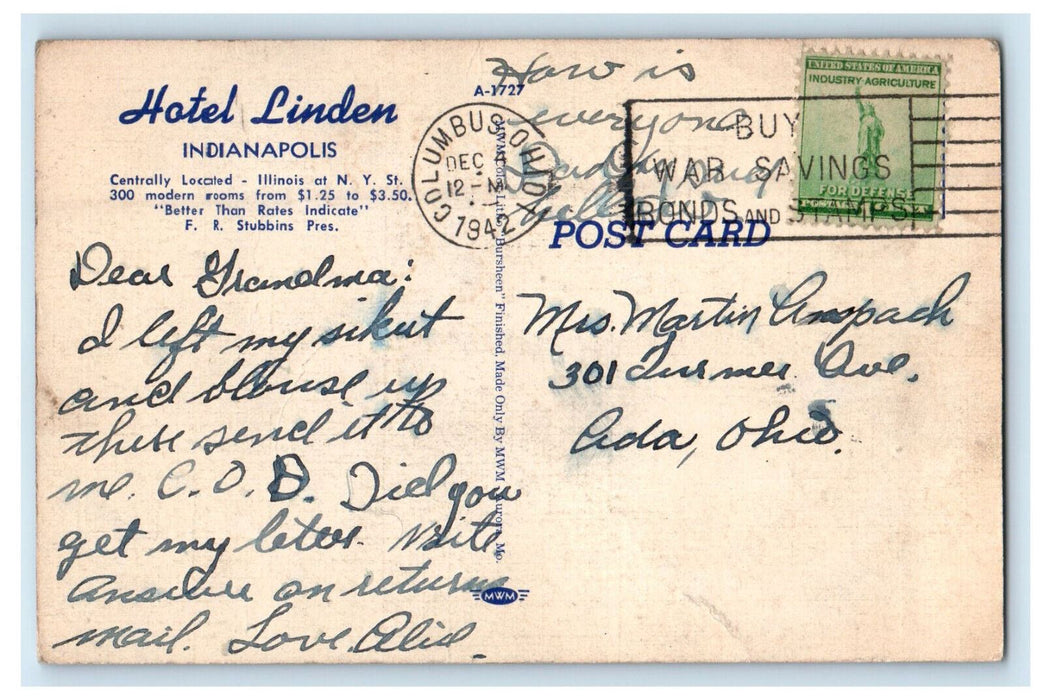 Hotel Linden
INDIANAPOLIS
Centrally Located - Illinois at N. Y. St.
300 modern rooms from $1.25 to $3.50.
"Better Than Rates Indicate"
F. R. Stubbins Pres.
A-1727
How is
everyone
COLUMBUS, OHIO
DEC 4
12 - M
1942
BUY
WAR SAVINGS
BONDS AND STAMPS
UNITED STATES OF AMERICA
INDUSTRY AGRICULTURE
FOR DEFENSE
POST CARD
Dear Grandma:
I left my skirt
and blouse up
there send it to
me. C. O. D. Did you
get my letter. Write
Answer on return
mail. Love
Mrs. Martin Anspach
301 Turner Ave.
Ada, Ohio.
"Bursheen" Finished. Made Only By MWM Aurora, Mo.
MWM